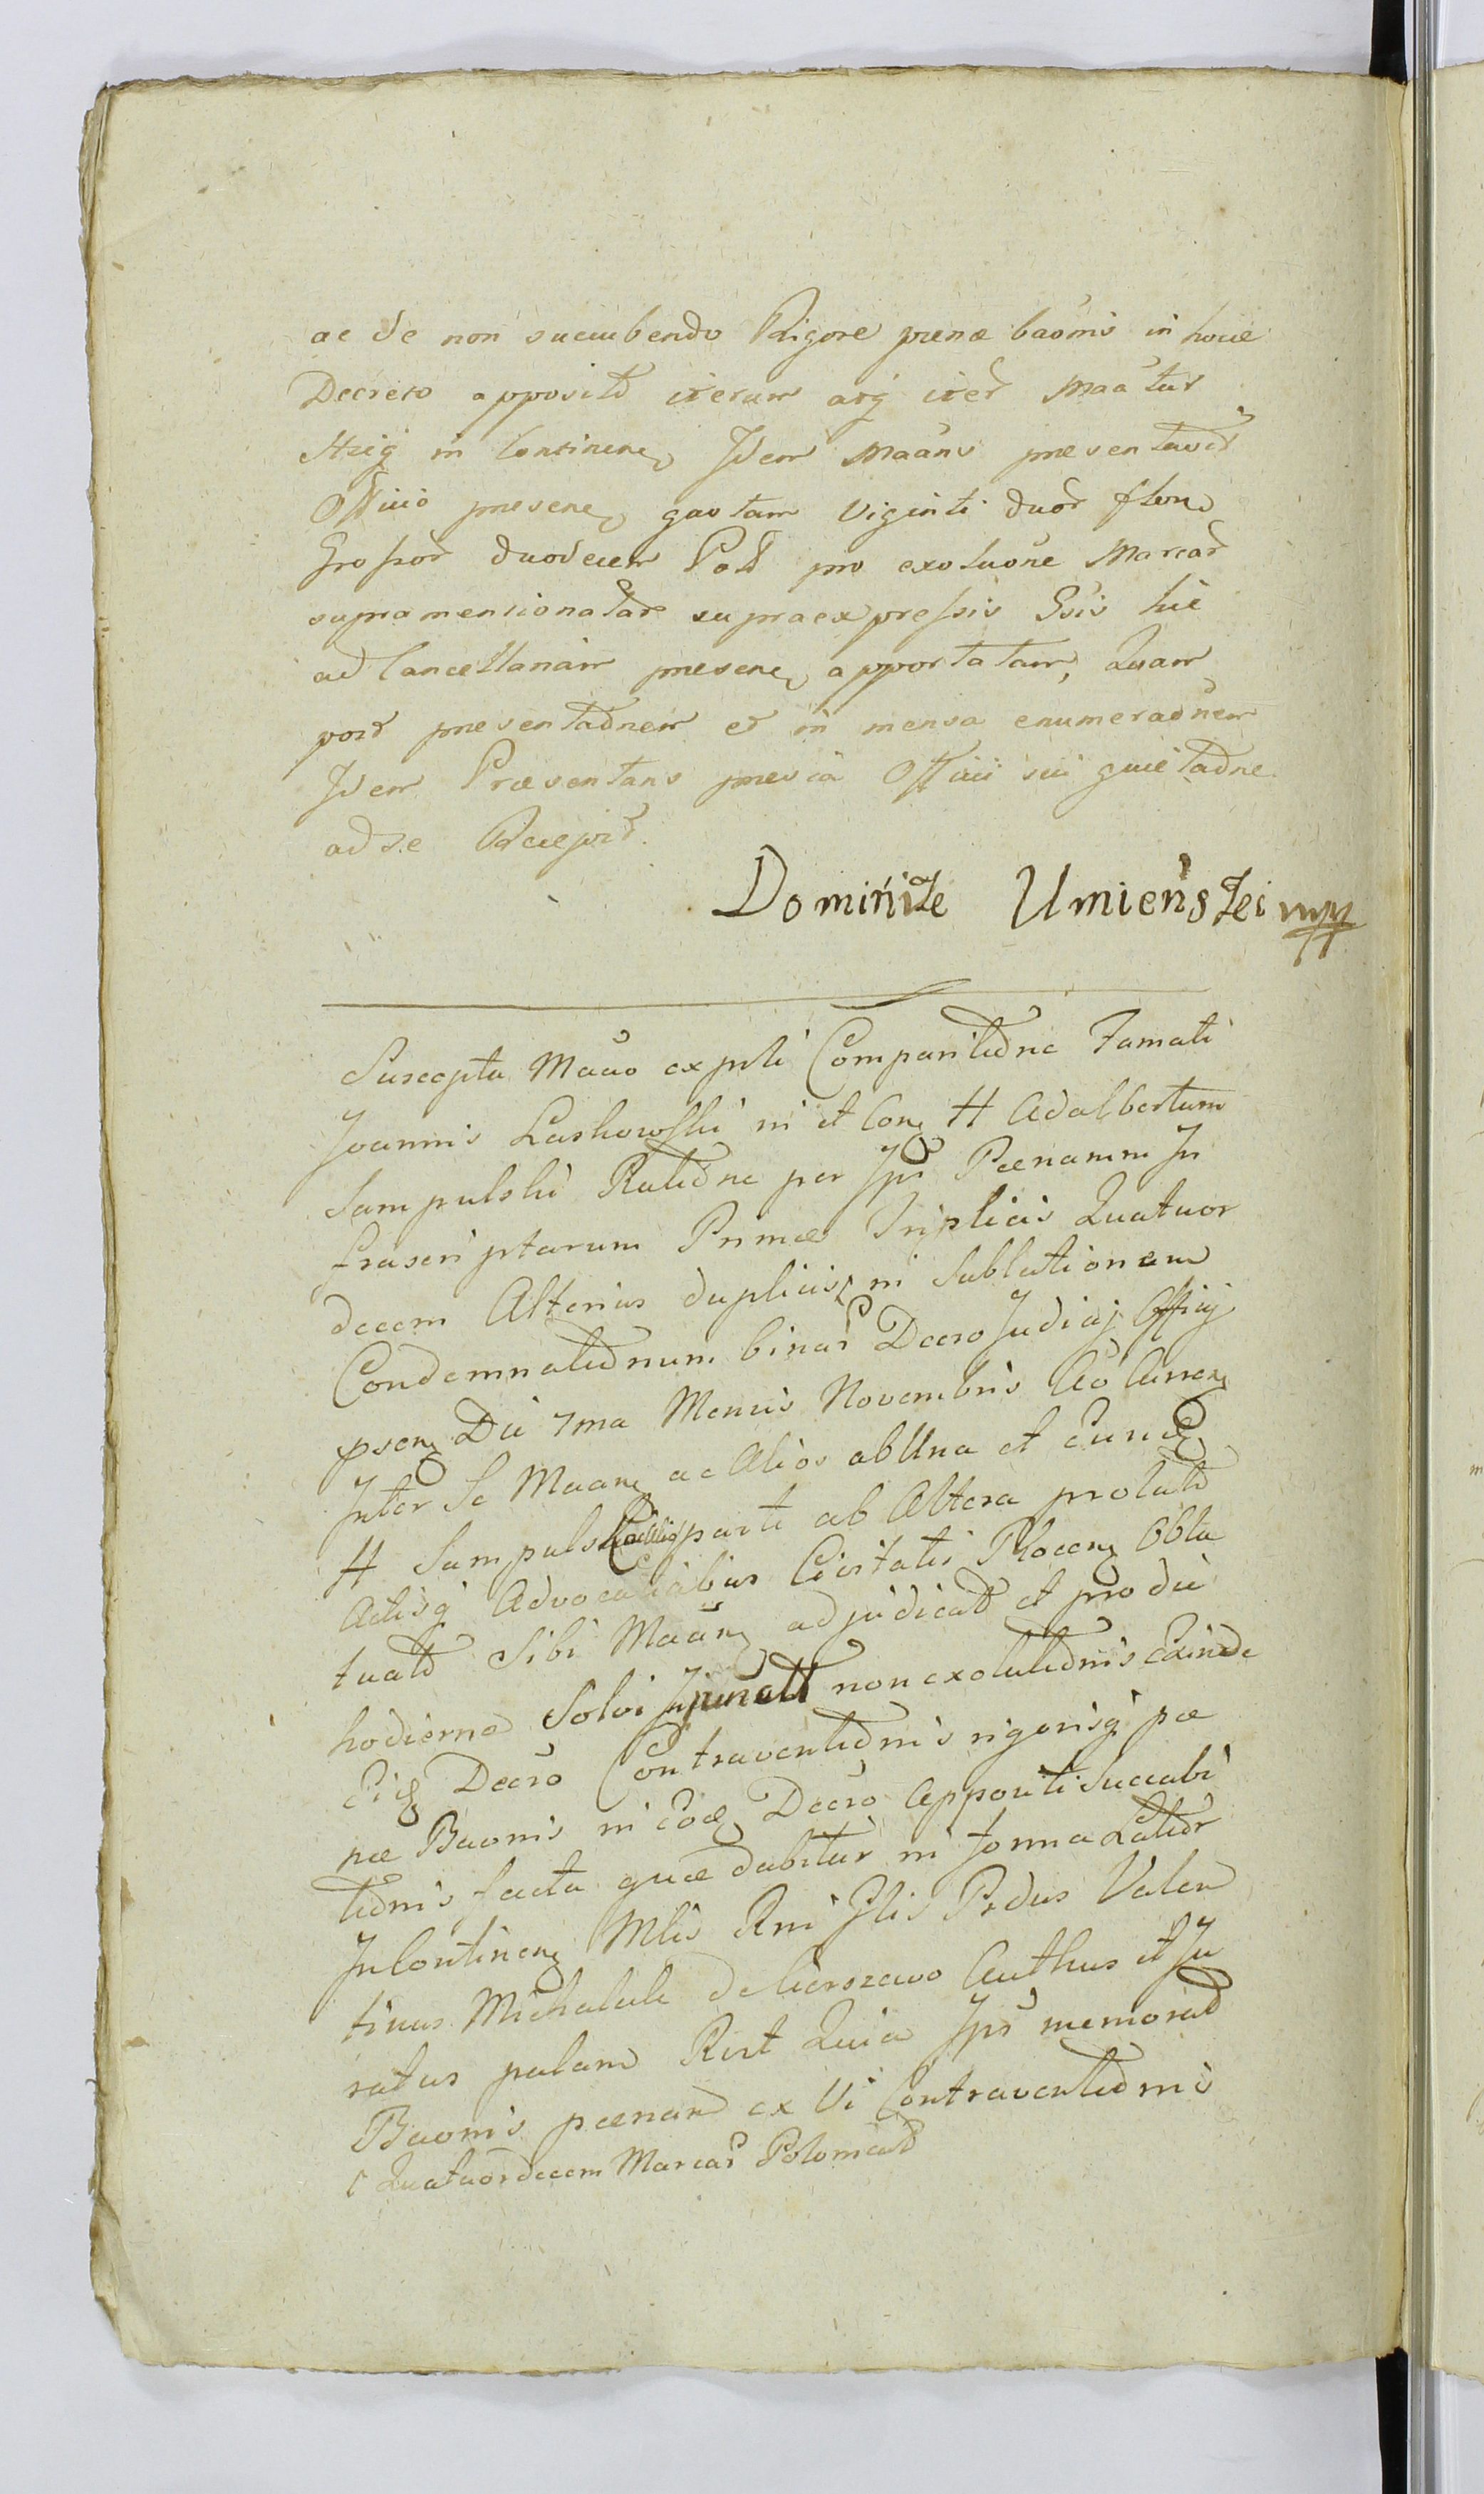 ac de non sucumbendo Rigore poenæ baōnis in hoce
Decreto apposito iterum atq̃ iter̃ Maãtur
Itẽq̃ in Continenẽ Idem Maãns præsentavit
Officio præsenẽ quotam viginti duor̃ flore
Grossor̃ duodecem Pol̃ pro exolũone Marcar̃
supramentionatar̃ supraexpressis Psis hic
ad Cancellariam præsenẽ apportatam, Quam
post præsentaõnem et in mensa enumeraõnem
Idem Præsentans prævia Officii sui quietaõne
ad se Recepit.
Dominik Umieński mpp
Suscepta Mãão ex prli Comparitiõne Famati
Joannis Laskowski in et Conẽ H Adalbertum
Sampulski Ratiõne per Ipš Pœnarum In
frascriptarum Primæ Triplicis Quatuor
decem Alterius duplicis ⌈ in Sublationem
Condemnatiõnum binar̃ Decro Judicij Officij
psenẽ Die 7ma Mensis Novembris Aõ Currenẽ
Inter Se Maanẽ ac Alios ab Una et Eundẽ
H Sampulski Citatũ parte ab Altera prolatõ
Actisq̃ Advocatialibus Civitatis Plocenẽ Obla
tuatõ Sibi Maãnẽ adjudicatõ et pro die
hodierna Solvi Injunctt non exolutiõnis Exinde
Eidẽ Decro Contraventiõnis rigorisq̃ pœ
næ Baonis in eodẽ Decro Appositi Succubi
tiõnis facta quæ dabitur in forma Latiõr
In Continenẽ Mlis Rni Jllis Prdus Valen
tinus Michalski de Cierszewo Authus et Ju
ratus palam Rect Quia Ipš memorat̃
Baonis pœnam ex Vi Contraventiõnis
⌈ Quatuordecem Marcar̃ Polonical̃